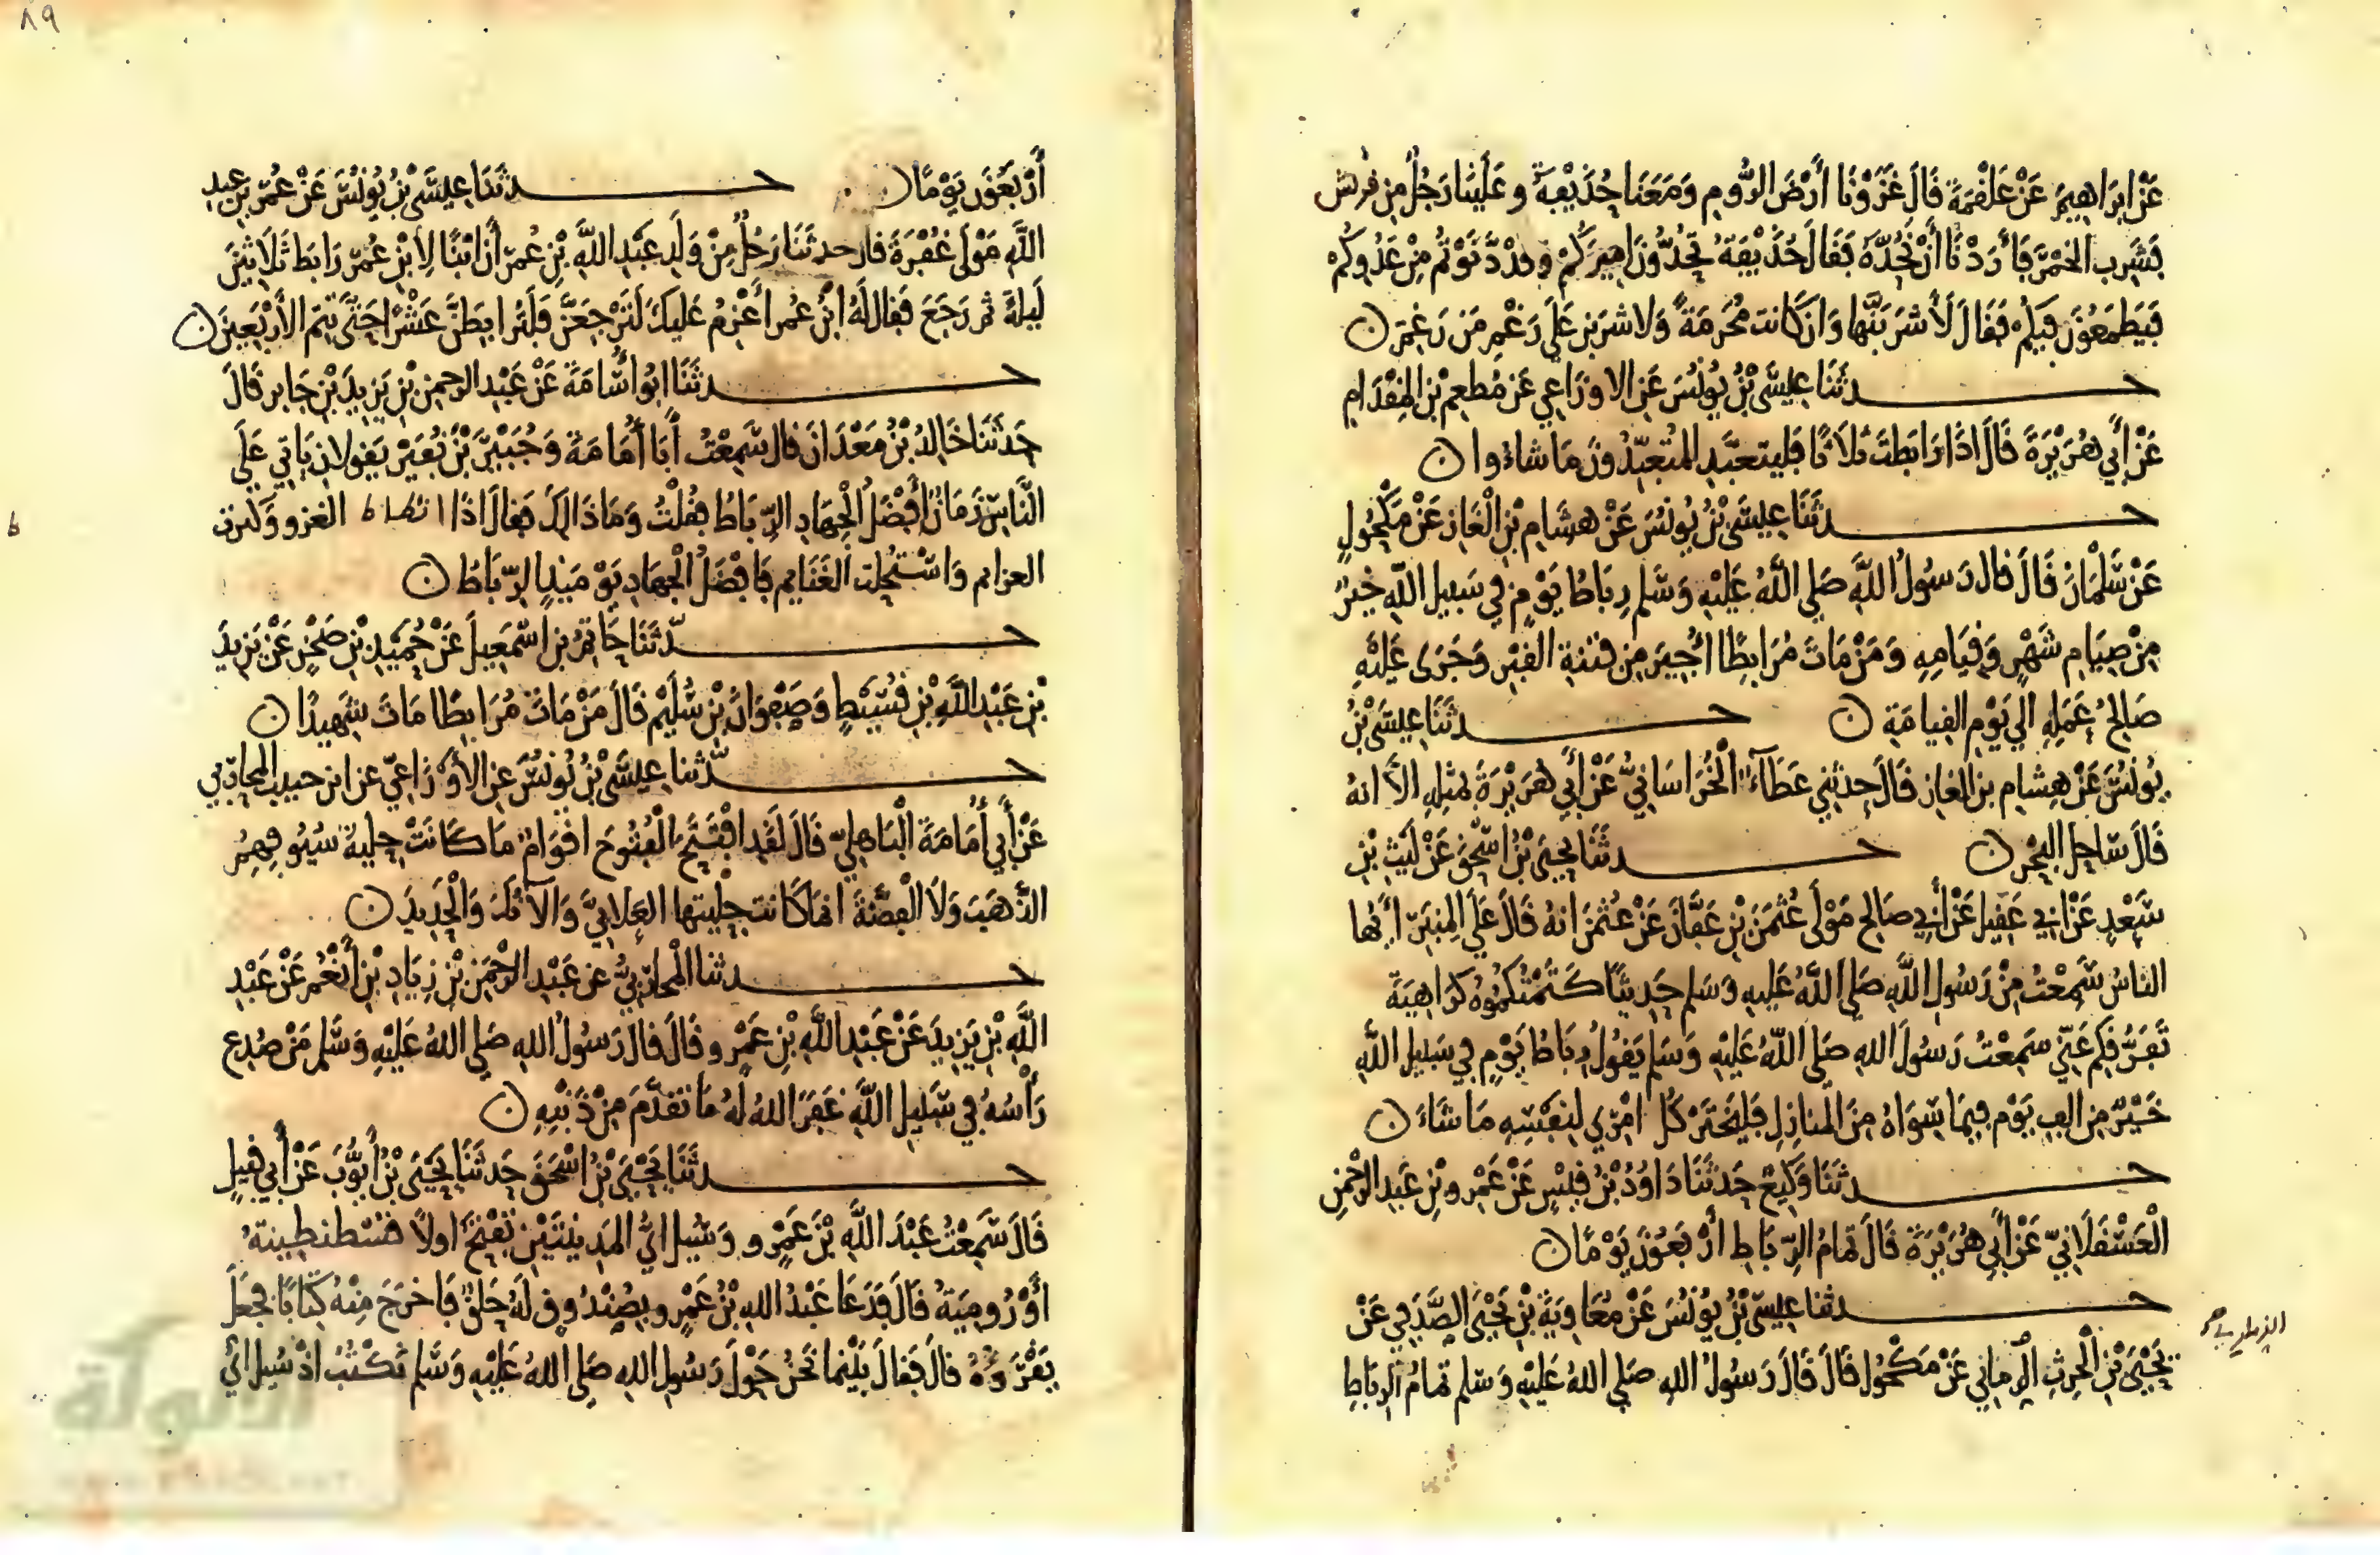 عَنْ اِبْرَاهِيمَ عَنْ عَلْقَمَةَ قَالَ غَزَوْنَا أَرْضَ الرُّومِ وَمَعَنَا حُذَيْفَةُ وعَلَيْنَا رَجُلٌ مِن قريش
فَشَرِبَ الخَمْرَ فَأَرَدْنَا أَنْ نَحُدَّهُ فَقَالَ حُذَيْفَةُ تَحُدُّونَ اَمِيرَكُمْ وقد دَنَوْتُمْ مِنْ عَدُوِّكُمْ
فَيَطْمَعُونَ فِيكُمْ فَقَالَ لَأَشْرَبَنَّهَا وَان كَانت مُحَرَّمَةً وَلاشرَبَن عَلَى رَغْمِ مَن رَغِمَ ن
حدثَنَا عِيسَى بْنُ يُونُسَ عَنِ الاوْزَاعِي عَن مُطعِم بْنِ المِقْدَامِ
عَنْ أَبِي هُرَيْرَةَ قَالَ اذَا رَابَطتَ ثَلاَثًا فَليتعَبَّدِ المُتعَبِّدُونَ مَا شاءُوا ن
حدثَنَا عِيسَى بْنُ يُونُسَ عَنْ هِشَامِ بْنِ الْغَازِ عَنْ مَكْحُولٍ
عَنْ سَلْمَانَ قَالَ قال رَسُولُ اللَّهِ صَلى اللَّهُ عَلَيْهِ وَسَلم رِبَاطُ يَوْمٍ في سَبِيلِ اللَّهِ خَيْرٌ
مِنْ صِيَامِ شَهْرٍ وَقِيَامِهِ وَمَنْ مَاتَ مُرَابِطًا اُجِيرَ مِن فِتنةِ القَبْرِ وَجَرَى عَلَيْهِ
صَالِحُ عَمَلِهِ الى يَوْمِ القِيامَةِ ن حدثَنَا عِيسَى بْنُ
يُونُسَ عَنْ هِشَامِ بن الغاز قَالَ حدثني عَطَاءٌ الْخُرَاسَانِيُّ عَنْ أَبِي هُرَيْرَةَ بِمِثْلِهِ الاَّ انهُ
قَالَ سَاحِلِ البَحْرِ ن حدثَنَا يَحْيَى بْنُ اسْحَقَ عَنْ لَيْثِ بْنِ
سَعْدٍ عَنْ ابي عَقِيلٍ عَنْ أَبِي صَالِحٍ مَوْلَى عُثْمَنَ بْنِ عَفَّانَ عَنْ عُثْمَنَ انهُ قَالَ عَلَى المِنبَرِ أَيُّهَا
النَّاسُ سَمِعْتُ مِنْ رَسُولِ اللَّهِ صَلى اللَّهُ عَلَيهِ وَسَلم حَدِيثًا كَتَمْتُكُمُوهُ كَرَاهِيَةَ
تَفَرُّقِكُمْ عَنِّي سَمِعْتُ رَسُولَ اللهِ صَلى اللَّهُ عَلَيْهِ وَسَلم يَقُولُ رِبَاطُ يَوْمٍ فِي سَبِيلِ اللَّهِ
خَيْرٌ مِن الفِ يَوْم فِيمَا سِوَاهُ مِنَ المَنازِلِ فَليَخْتَرْ كُلُّ امْرِئٍ لِنَفْسِهِ مَا شَاءَ ن
حدثَنَا وَكِيعٌ حَدثَنَا دَاوُدُ بْنُ قَيْسٍ عَنْ عَمْرِو بْنِ عَبدِ الرَّحْمَنِ
الْعَسْقَلَانِيِّ عَنْ أَبِي هُرَيْرَةَ قَالَ تَمَامُ الرِّبَاطِ أَرْبَعُونَ يَوْمًا ن
حدثنا عِيسَى بْنُ يُونُسَ عَنْ مُعَاوِيَةَ بْنِ يَحْيَى الصَّدَفِي عَنْ
يَحْيَى بْنِ الْحرِثِ الرِّمَانِي عَنْ مَكْحُولٍ قَالَ قَالَ رَسُولُ اللهِ صَلى اللهُ عَلَيْهِ وَسَلم تَمَامُ الرباطِ
٨٩
أَرْبَعُونَ يَوْمًا ن حدثَنَا عِيسَى بْنُ يُونُسَ عَنْ عُمَرَ بْنِ عبد
اللَّهِ مَوْلَى غُفْرَةَ قال حدثنَا رَجُلٌ مِنْ وَلَدِ عَبْدِ اللَّهِ بْنِ عُمَرَ أَنَّ ابْنًا لِابْنِ عُمَرَ رَابَطَ ثَلاَثِينَ
لَيْلَةً ثم رَجَعَ فَقالَ لَهُ ابْنُ عُمرَ أَعْزِمُ عَلَيْكَ لَتَرْجِعَنَّ فَلَتُرَابِطَنَّ عَشْرًا حَتَّى تُتِمَّ الأَرْبَعِينَ ن
حدثَنَا ابُو أُسَامَةَ عَنْ عَبْدِ الرحمنِ بْنِ يَزِيدَ بْنِ جَابر قَالَ
حَدثَنَا خَالِدُ بْنُ مَعْدَانَ قال سَمِعْتُ أَبَا أُمَامَةَ وَجُبَيْرَ بْنَ نُفَيْرٍ يَقولان يَأتِي عَلَى
النَّاسِ زَمَانٌ أَفْضَلُ الْجِهَادِ الرِّبَاطُ فَقُلْتُ وَمَا ذَالِكَ فَقالَ اذَا انطاط الغزو وَكثرت
ط
الغرائم وَاسْتُحِلت الغَنَايِم فَافْضَلُ الْجِهَادِ يَوْمَيِذٍ الرِّبَاطُ ن
حدّثَنَا حَاتِمُ بن اسْمَعِيلَ عَنْ حُمَيْدِ بْنِ صَخْرٍ عَنْ يَزِيدَ
بْنِ عَبْدِ اللَّهِ بْنِ قُسَيْطٍ وَصَفْوَانَ بْنِ سُلَيْمٍ قَالَ مَنْ مَاتَ مُرَابِطًا مَاتَ شَهِيدًا ن
حدّثنا عِيسَى بْنُ يُونُسَ عَنِ الأَوْزَاعِيِّ عن ابن حبيب المحاربي
عَنْ أَبِي أُمَامَةَ الْبَاهِلِيِّ قَالَ لَقَدِ افْتَتَحَ الْفُتُوحَ اقوَامٌ مَا كَانَتْ حِلْيَةُ سُيُوفِهِمُ
الذَّهَبَ وَلَا الْفِضَّةَ انما كَانت حِلْيَتها العَلَابِيَّ وَالآنُكَ وَالْحَدِيدَ ن
حدثنا الْمُحَارِبيُّ عن عَبْدِ الرَّحْمَنِ بْنِ زِيَادِ بْنِ أَنْعُمَ عَنْ عَبْدِ
اللَّهِ بْنِ يَزِيدَ عَنْ عَبْدِ اللَّهِ بْنِ عَمْرٍو قَالَ قالَ رَسُولُ اللهِ صَلى اللهُ عَلَيْهِ وَسَلم مَنْ صُدِعَ
رَأْسُهُ فِي سَبِيلِ اللَّهِ غَفَرَ اللهُ لَهُ مَا تقدَّمَ مِنْ ذَنْبِهِ ن
حدثَنَا يَحْيَى بْنُ اسْحَقَ حَدثَنَا يَحْيَى بْنُ أَيُّوبَ عَنْ أَبِي قَبِيلٍ
قَالَ سَمِعْتُ عَبْدَ اللَّهِ بْنَ عَمْرٍو وَسُيِلَ ايُّ المَدِينَتَيْنِ تُفْتَحُ اولاً قسْطنطِينيةُ
أَوْ رُومِيَةُ قَالَ فَدَعَا عَبْدُ اللهِ بْنُ عَمْرٍو بِصُنْدُوقٍ لَهُ حَلَقٌ فَاخرَجَ مِنْهُ كِتَابًا فَجَعَلَ
يَقْرَؤُهُ قالَ فَقالَ بَيْنَما نَحْنُ حَوْلَ رَسُولِ اللهِ صَلى اللهُ عَلَيْهِ وَسَلم نَكْتُبُ اذْ سُيِلَ ايُّ